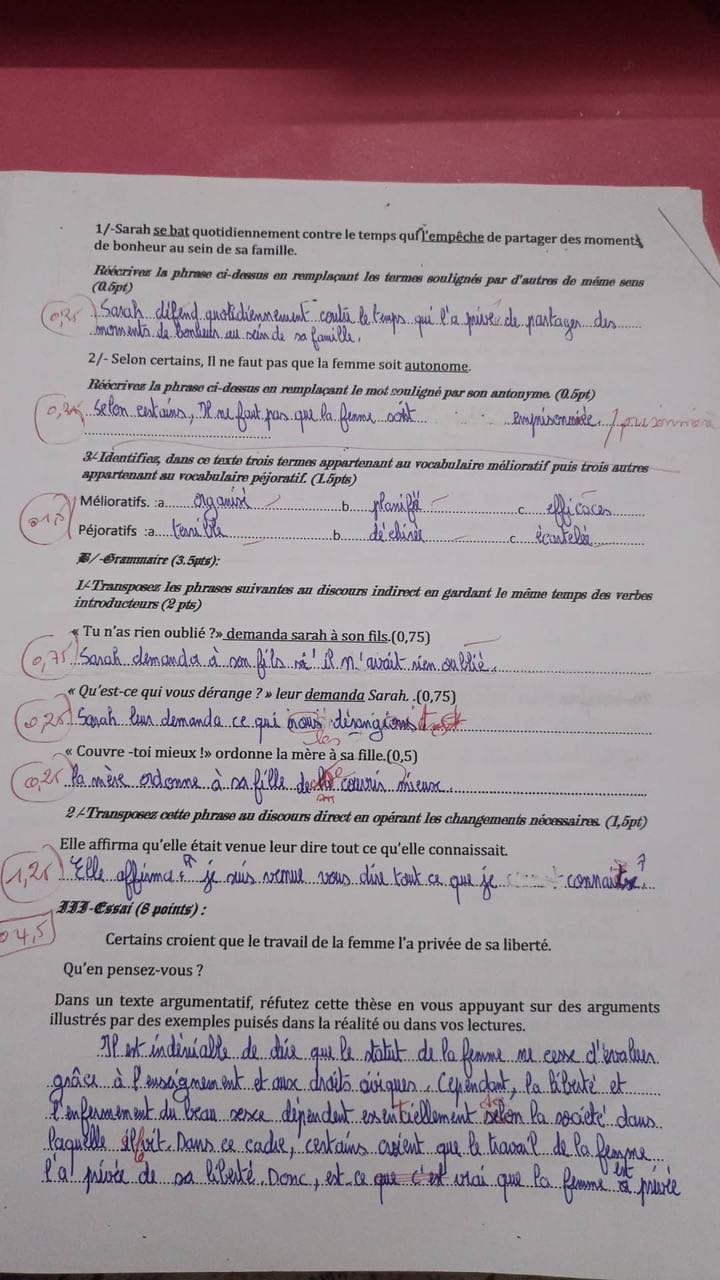 1/-Sarah se bat quotidiennement contre le temps qui l'empêche de partager des moments
de bonheur au sein de sa famille.
Réécrivez la phrase ci-dessus en remplaçant les termes soulignés par d'autres de même sens
(0.5pt)
0,25 Sarah défend quotidiennement contre le temps qui l'a prive de partager des
moments de bonheur au sein de sa famille.
2/- Selon certains, Il ne faut pas que la femme soit autonome.
Réécrivez la phrase ci-dessus en remplaçant le mot souligné par son antonyme. (0.5pt)
0,25 Selon certains, Il ne faut pas que la femme soit emprisonnée. / prisonnière
3/-Identifiez, dans ce texte trois termes appartenant au vocabulaire mélioratif puis trois autres
appartenant au vocabulaire péjoratif. (1.5pts)
Mélioratifs. :a organisé b planifié c efficaces
01,5
Péjoratifs :a terrible b déchirée c écartelée
B/-Grammaire (3.5pts):
1/-Transposez les phrases suivantes au discours indirect en gardant le même temps des verbes
introducteurs (2 pts)
« Tu n'as rien oublié ?» demanda sarah à son fils.(0,75)
0,75 Sarah demanda à son fils s'il n'avait rien oublié.
« Qu'est-ce qui vous dérange ? » leur demanda Sarah. .(0,75)
0,25 Sarah leur demanda ce qui nous dérangions
les
« Couvre -toi mieux !» ordonne la mère à sa fille.(0,5)
0,25 la mère ordonne à sa fille de couvrir mieux.
2 /-Transposez cette phrase au discours direct en opérant les changements nécessaires. (1,5pt)
Elle affirma qu'elle était venue leur dire tout ce qu'elle connaissait.
1,25 Elle affirma : « je suis venue vous dire tout ce que je
III-Essai (6 points) :
04,5
Certains croient que le travail de la femme l'a privée de sa liberté.
Qu'en pensez-vous ?
Dans un texte argumentatif, réfutez cette thèse en vous appuyant sur des arguments
illustrés par des exemples puisés dans la réalité ou dans vos lectures.
Il est indéniable de dire que le statut de la femme ne cesse d'évoluer
grâce à l'enseignement et aux droits civiques. Cependant, la liberté et
l'enfermement du beau sexe dépendent essentiellement selon la société dans
laquelle il vit. Dans ce cadre, certains croient que le travail de la femme
l'a privée de sa liberté. Donc, est-ce que c'est vrai que la femme est privée